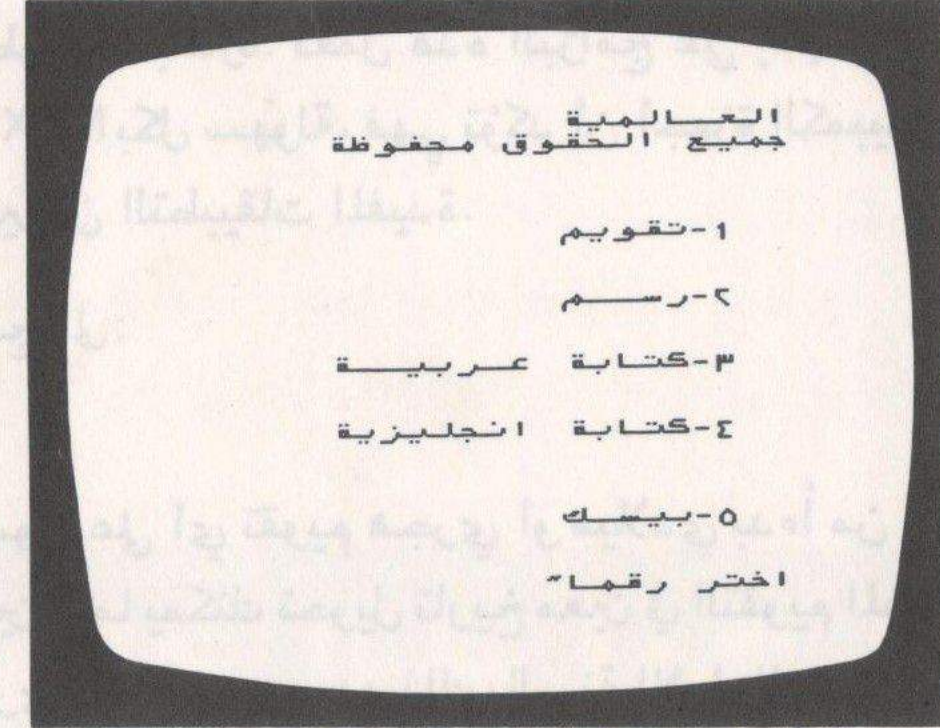 العالمية
جميع الحقوق محفوظة
١-تقويم
٢-رسم
٣-كتابة عربية
٤-كتابة انجليزية
٥-بيسك
اختر رقما"